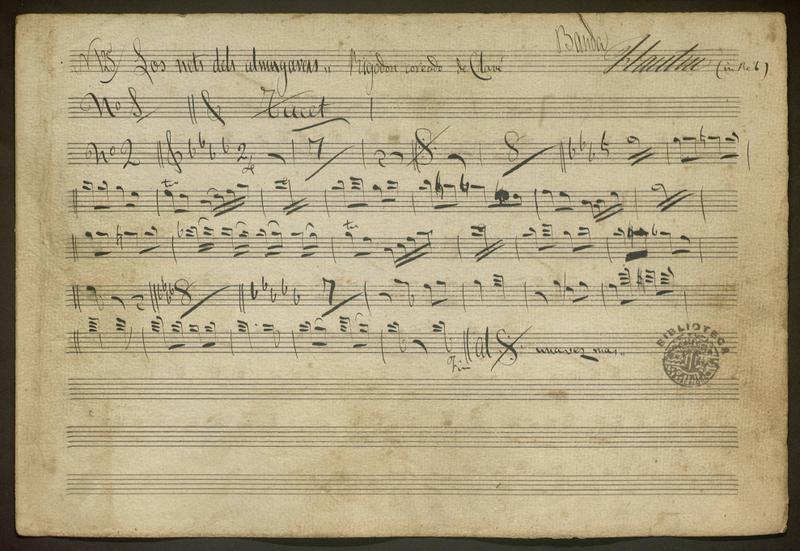 Banda
Nº 5 Los nets dels almugavers,, Rigodon coreado de Clavé Flautin (in Re b)
Nº 1 Tacet
Nº 2 2/4 7
8
8 7
Fin al S. una vez mas.
BIBLIOTECA